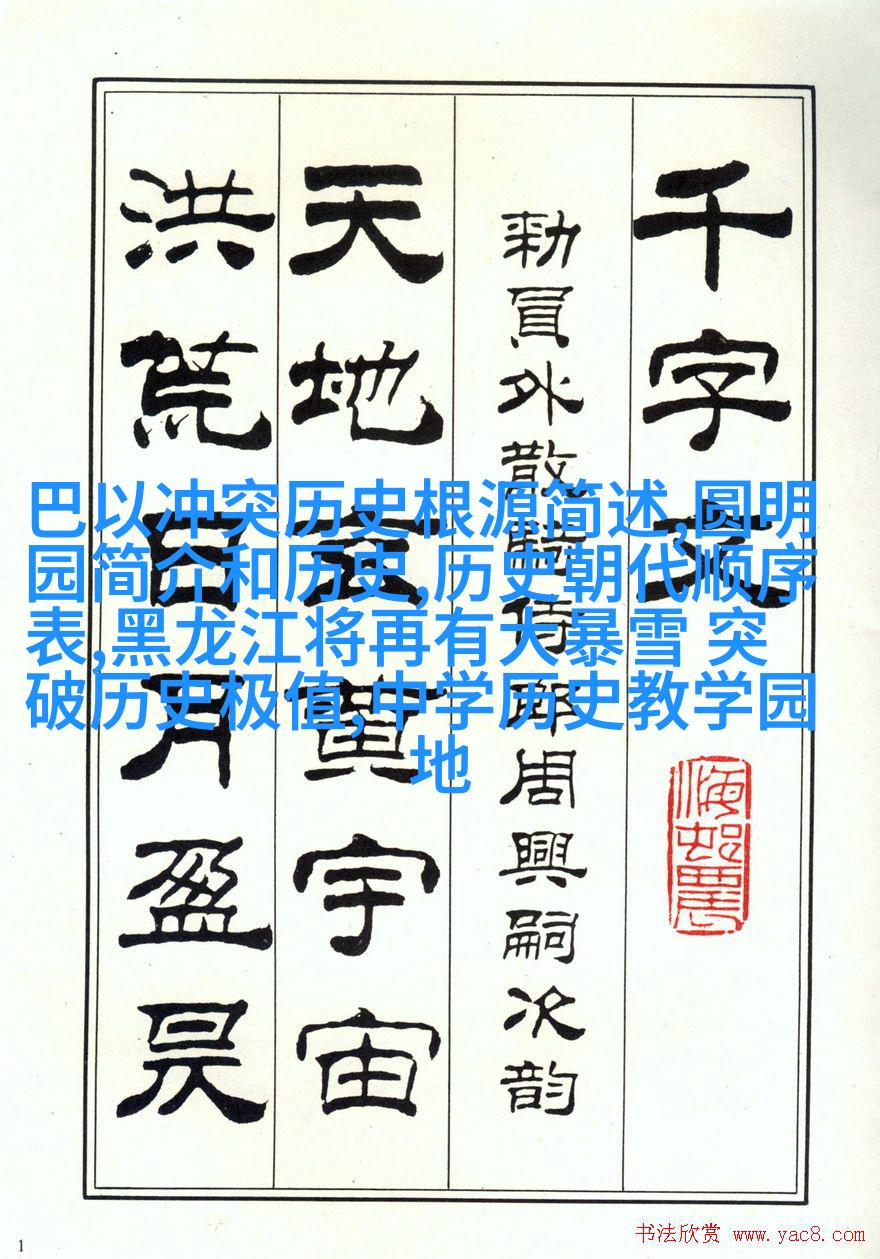 千字文
勑員外散騎侍郎周興嗣次韵
天地玄黄宇宙
洪荒日月盈昃
巴以冲突历史根源简述,圆明
园简介和历史,历史朝代顺序
表,黑龙江将再有大暴雪 突
破历史极值,中学历史教学园
地
1
书法欣赏 www.yac8.com